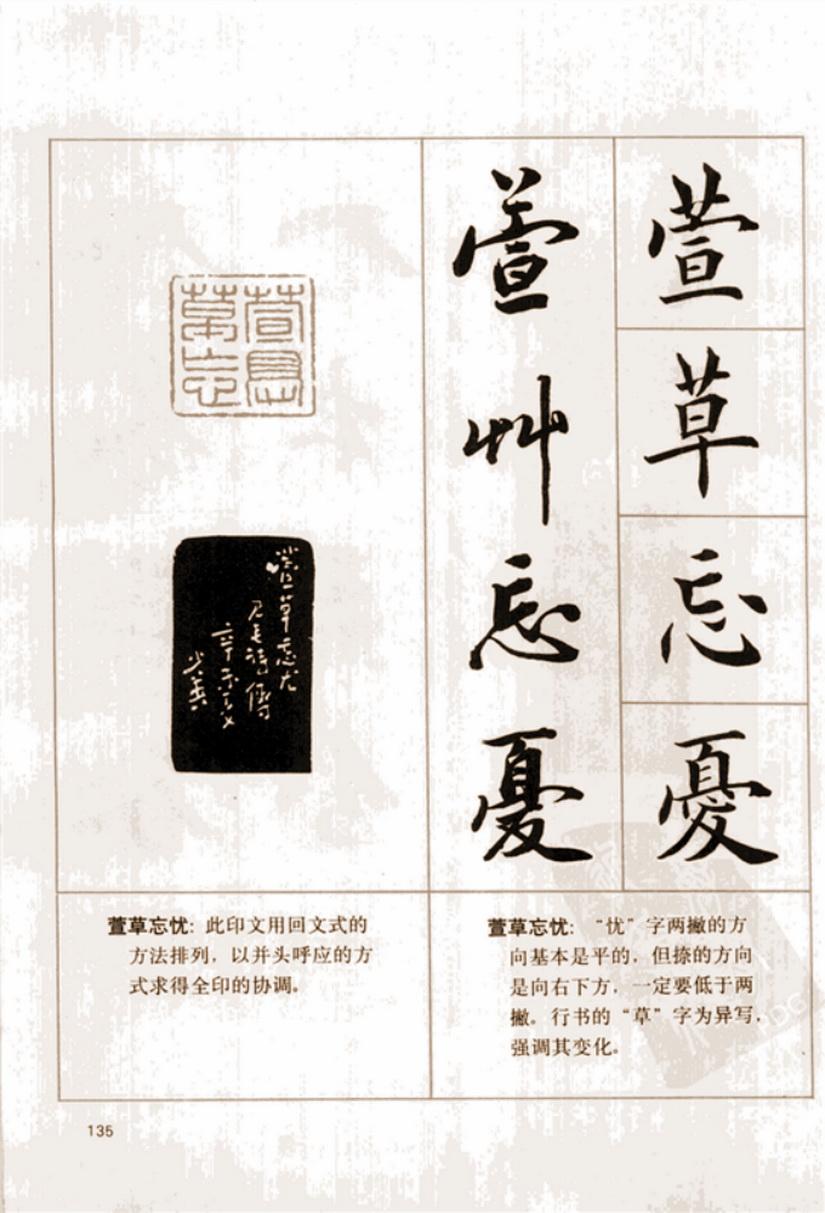 萱草忘憂
萱艸忘憂
萱憂
草忘
萱草忘尤
乃毛詩傳
辛未
萱草忘忧：此印文用回文式的
方法排列，以并头呼应的方
式求得全印的协调。
萱草忘忧：“忧”字两撇的方
向基本是平的，但捺的方向
是向右下方，一定要低于两
撇。行书的“草”字为异写，
强调其变化。
135